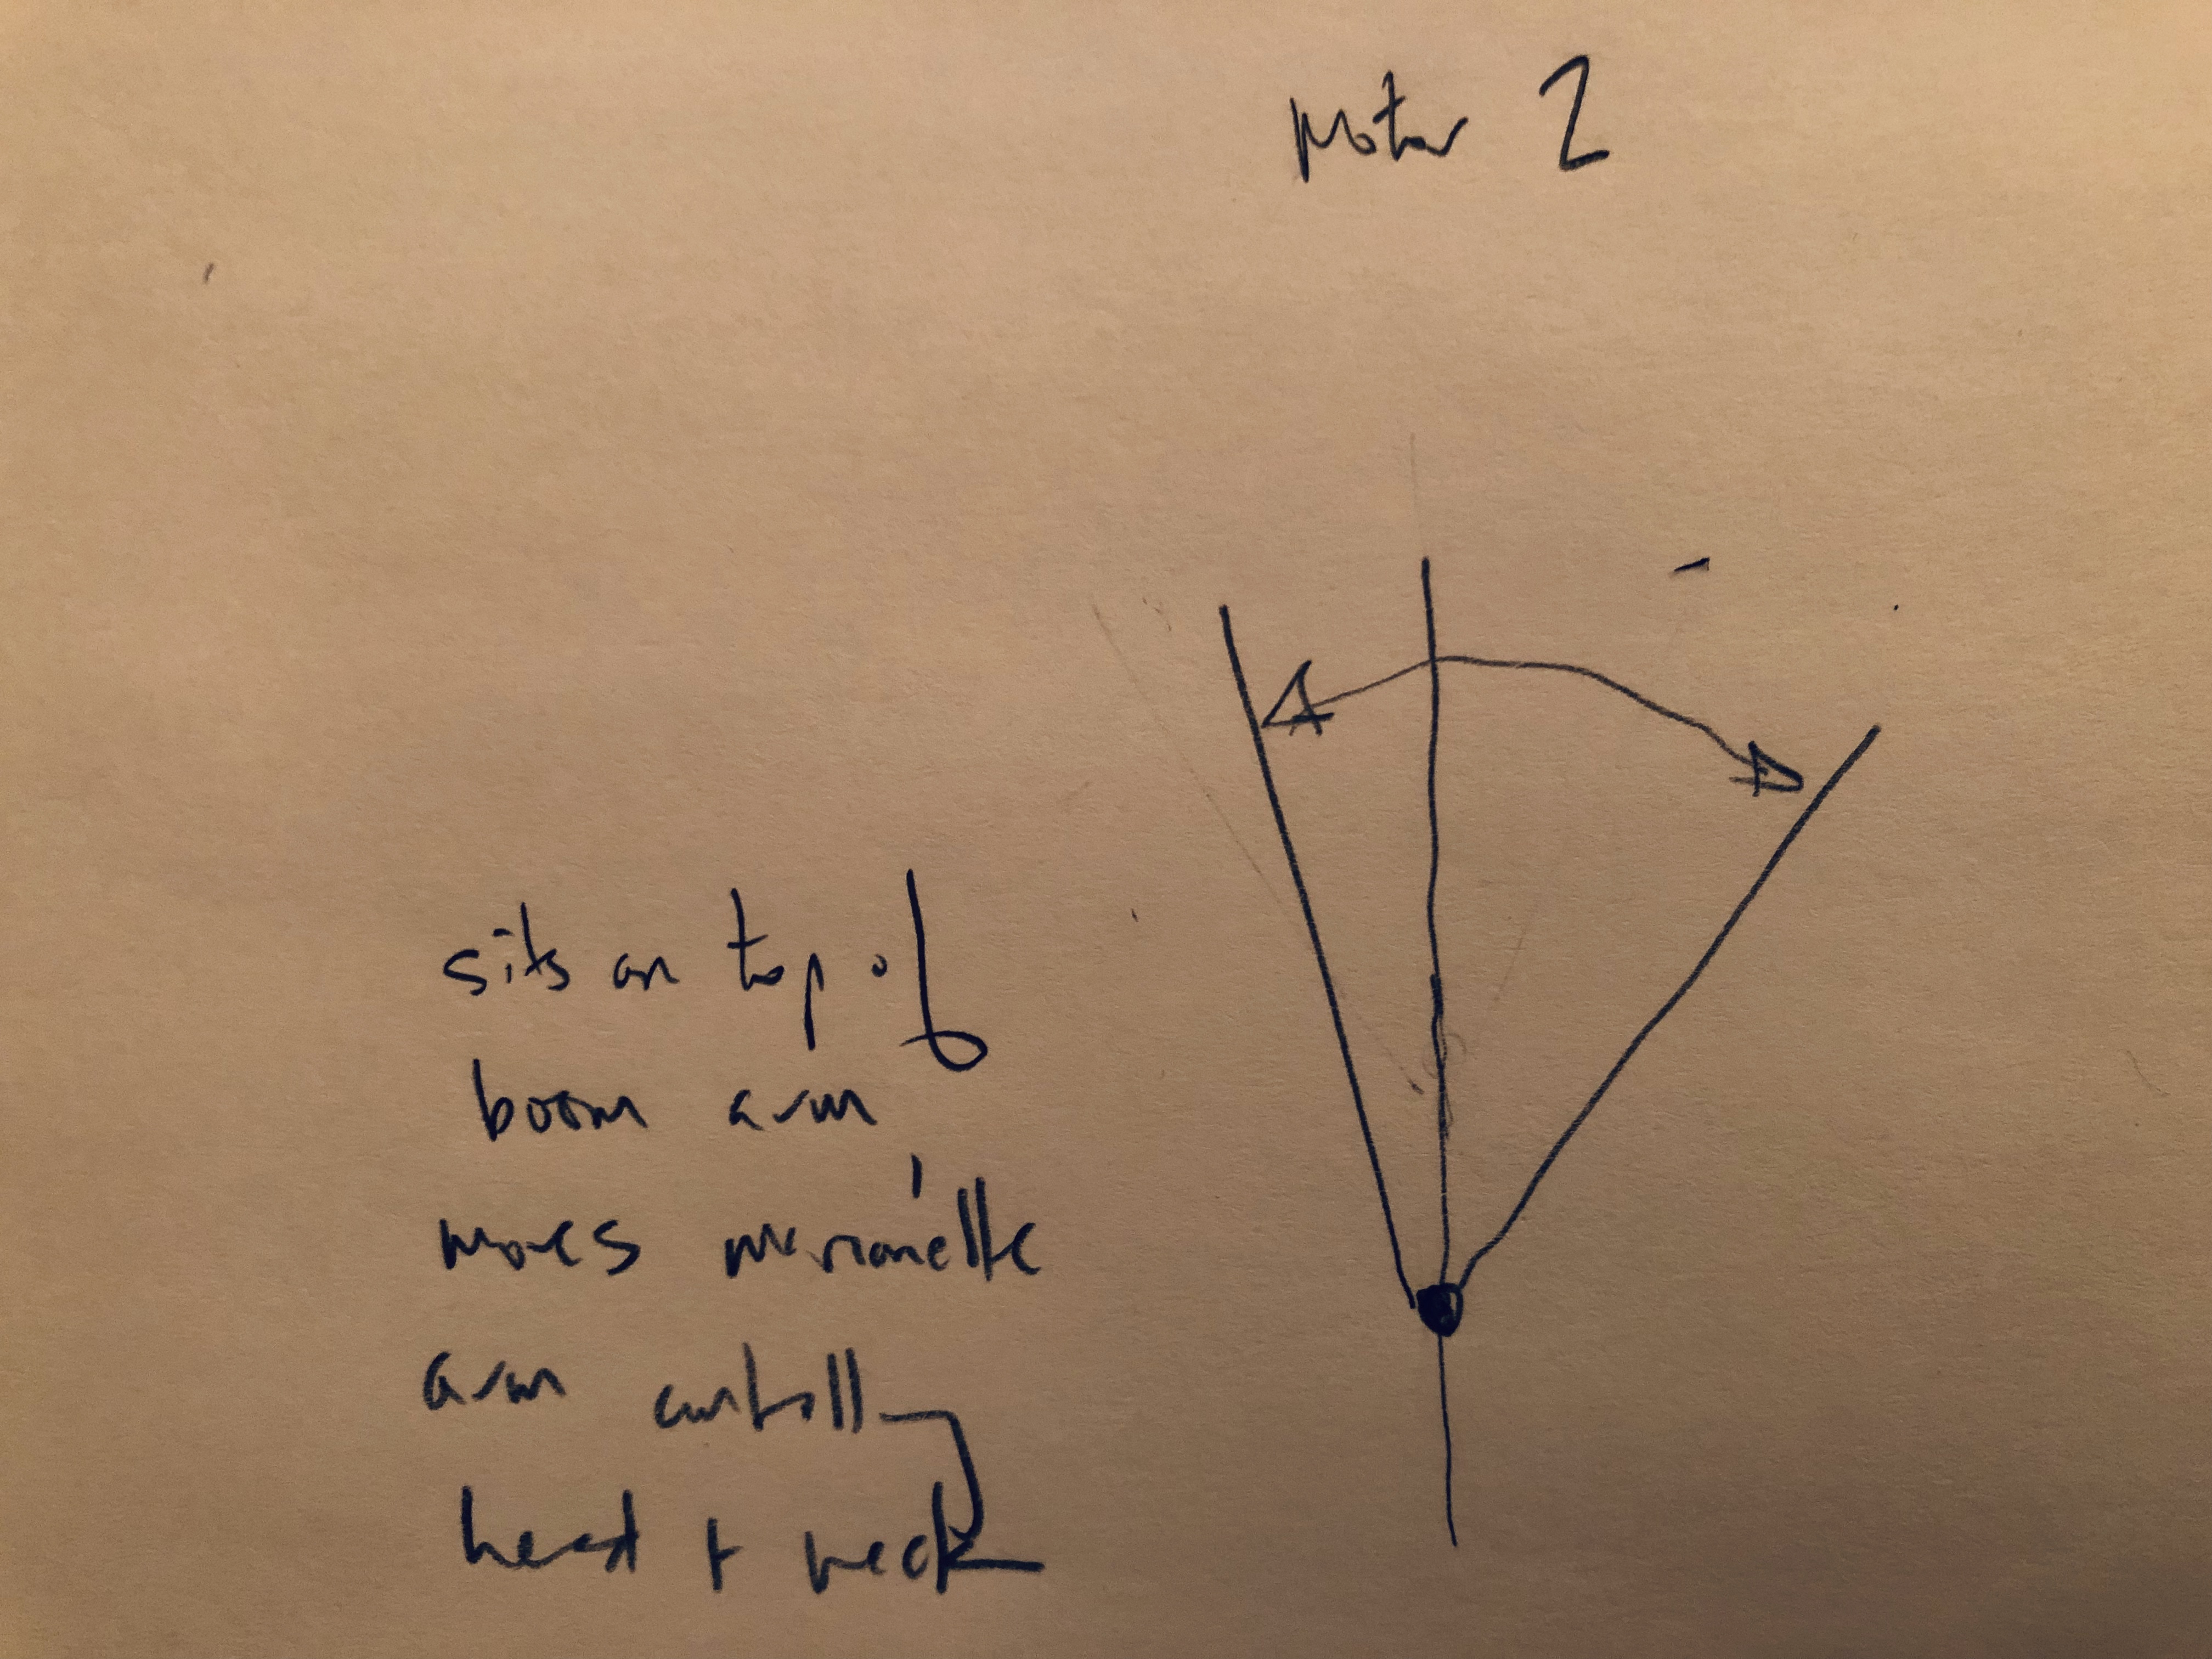 Motor 2
sits on top of
boom arm
moves marionette
arm controlling
head + neck